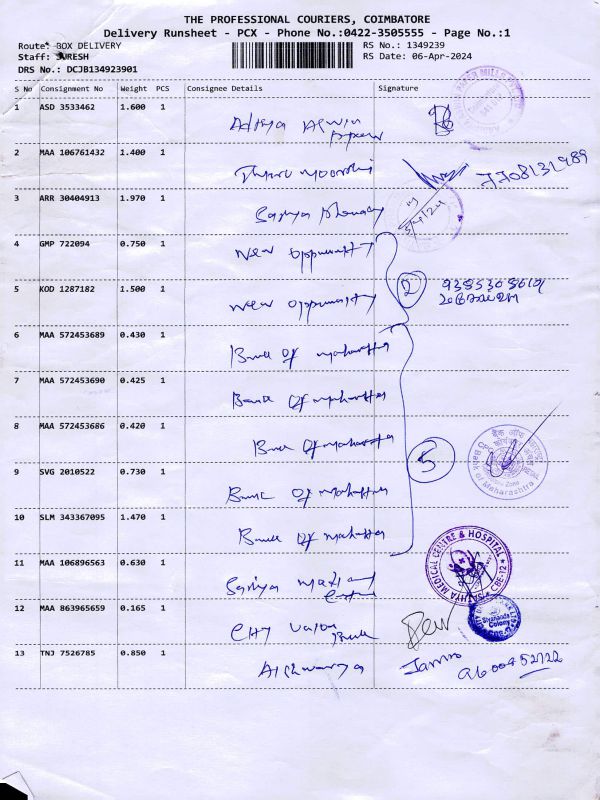 THE PROFESSIONAL COURIERS, COIMBATORE
Delivery Runsheet - PCX - Phone No.:0422-3505555 - Page No.:1
Route: BOX DELIVERY
RS No.: 1349239
Staff: SURESH
RS Date: 06-Apr-2024
DRS No.: DCJB134923901
S No Consignment No Weight PCS Consignee Details Signature
1 ASD 3533462 1.600 1
2 MAA 106761432 1.400 1 7708131989
3 ARR 30404913 1.970 1
4 GMP 722094 0.750 1 New Oppunatty
5 KOD 1287182 1.500 1 New Oppunatty 2
6 MAA 572453689 0.430 1 Bank Of Maharashtra
7 MAA 572453690 0.425 1 Bank Of Maharashtra
8 MAA 572453686 0.420 1 Bank Of Maharashtra
9 SVG 2010522 0.730 1 Bank Of Maharashtra 5
Bank of Maharashtra
10 SLM 343367095 1.470 1 Bank Of Maharashtra
11 MAA 106896563 0.630 1
SATHYA MEDICAL CENTRE & HOSPITAL CBE-12
12 MAA 863965659 0.165 1 City Union Bank
Sivananda Colony
13 TNJ 7526785 0.850 1 Aishwarya